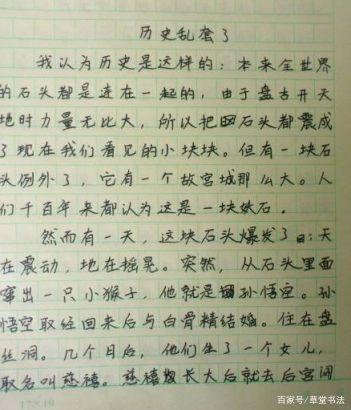 历史乱套了
我认为历史是这样的：本来全世界
的石头都是连在一起的，由于盘古开天
地时力量无比大，所以把石头都震成
了现在我们看见的小块块。但有一块石
头例外了，它有一个故宫城那么大。人
们千百年来都认为这是一块妖石．
然而有一天，这块石头爆发了：天
在震动，地在摇晃。突然，从石头里面
窜出一只小猴子，他就是孙悟空。孙
悟空取经回来后与白骨精结婚。住在盘
丝洞。几个月后，他们生了一个女儿，
取名叫慈禧。慈禧长大后就去后宫闯
17×19
百家号/草堂书法